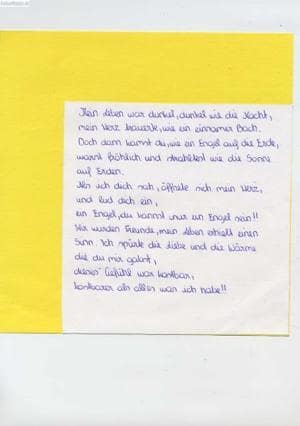 Mein Leben war dunkel, dunkel wie die Nacht,
mein Herz trauerte, wie ein einsamer Bach.
Doch dann kamst du, wie ein Engel auf die Erde,
warst fröhlich und strahltest wie die Sonne
auf Erden.
Als ich dich sah, öffnete sich mein Herz,
und lud dich ein,
ein Engel, du kannst nur ein Engel sein!!
Wir wurden Freunde, mein Leben erhielt einen
Sinn. Ich spürte die Liebe und die Wärme
die du mir gabst,
dieses Gefühl war kostbar,
kostbarer als alles was ich habe!!